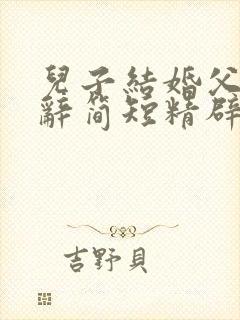 兒子結婚父
辭簡短精辟
吉野貝